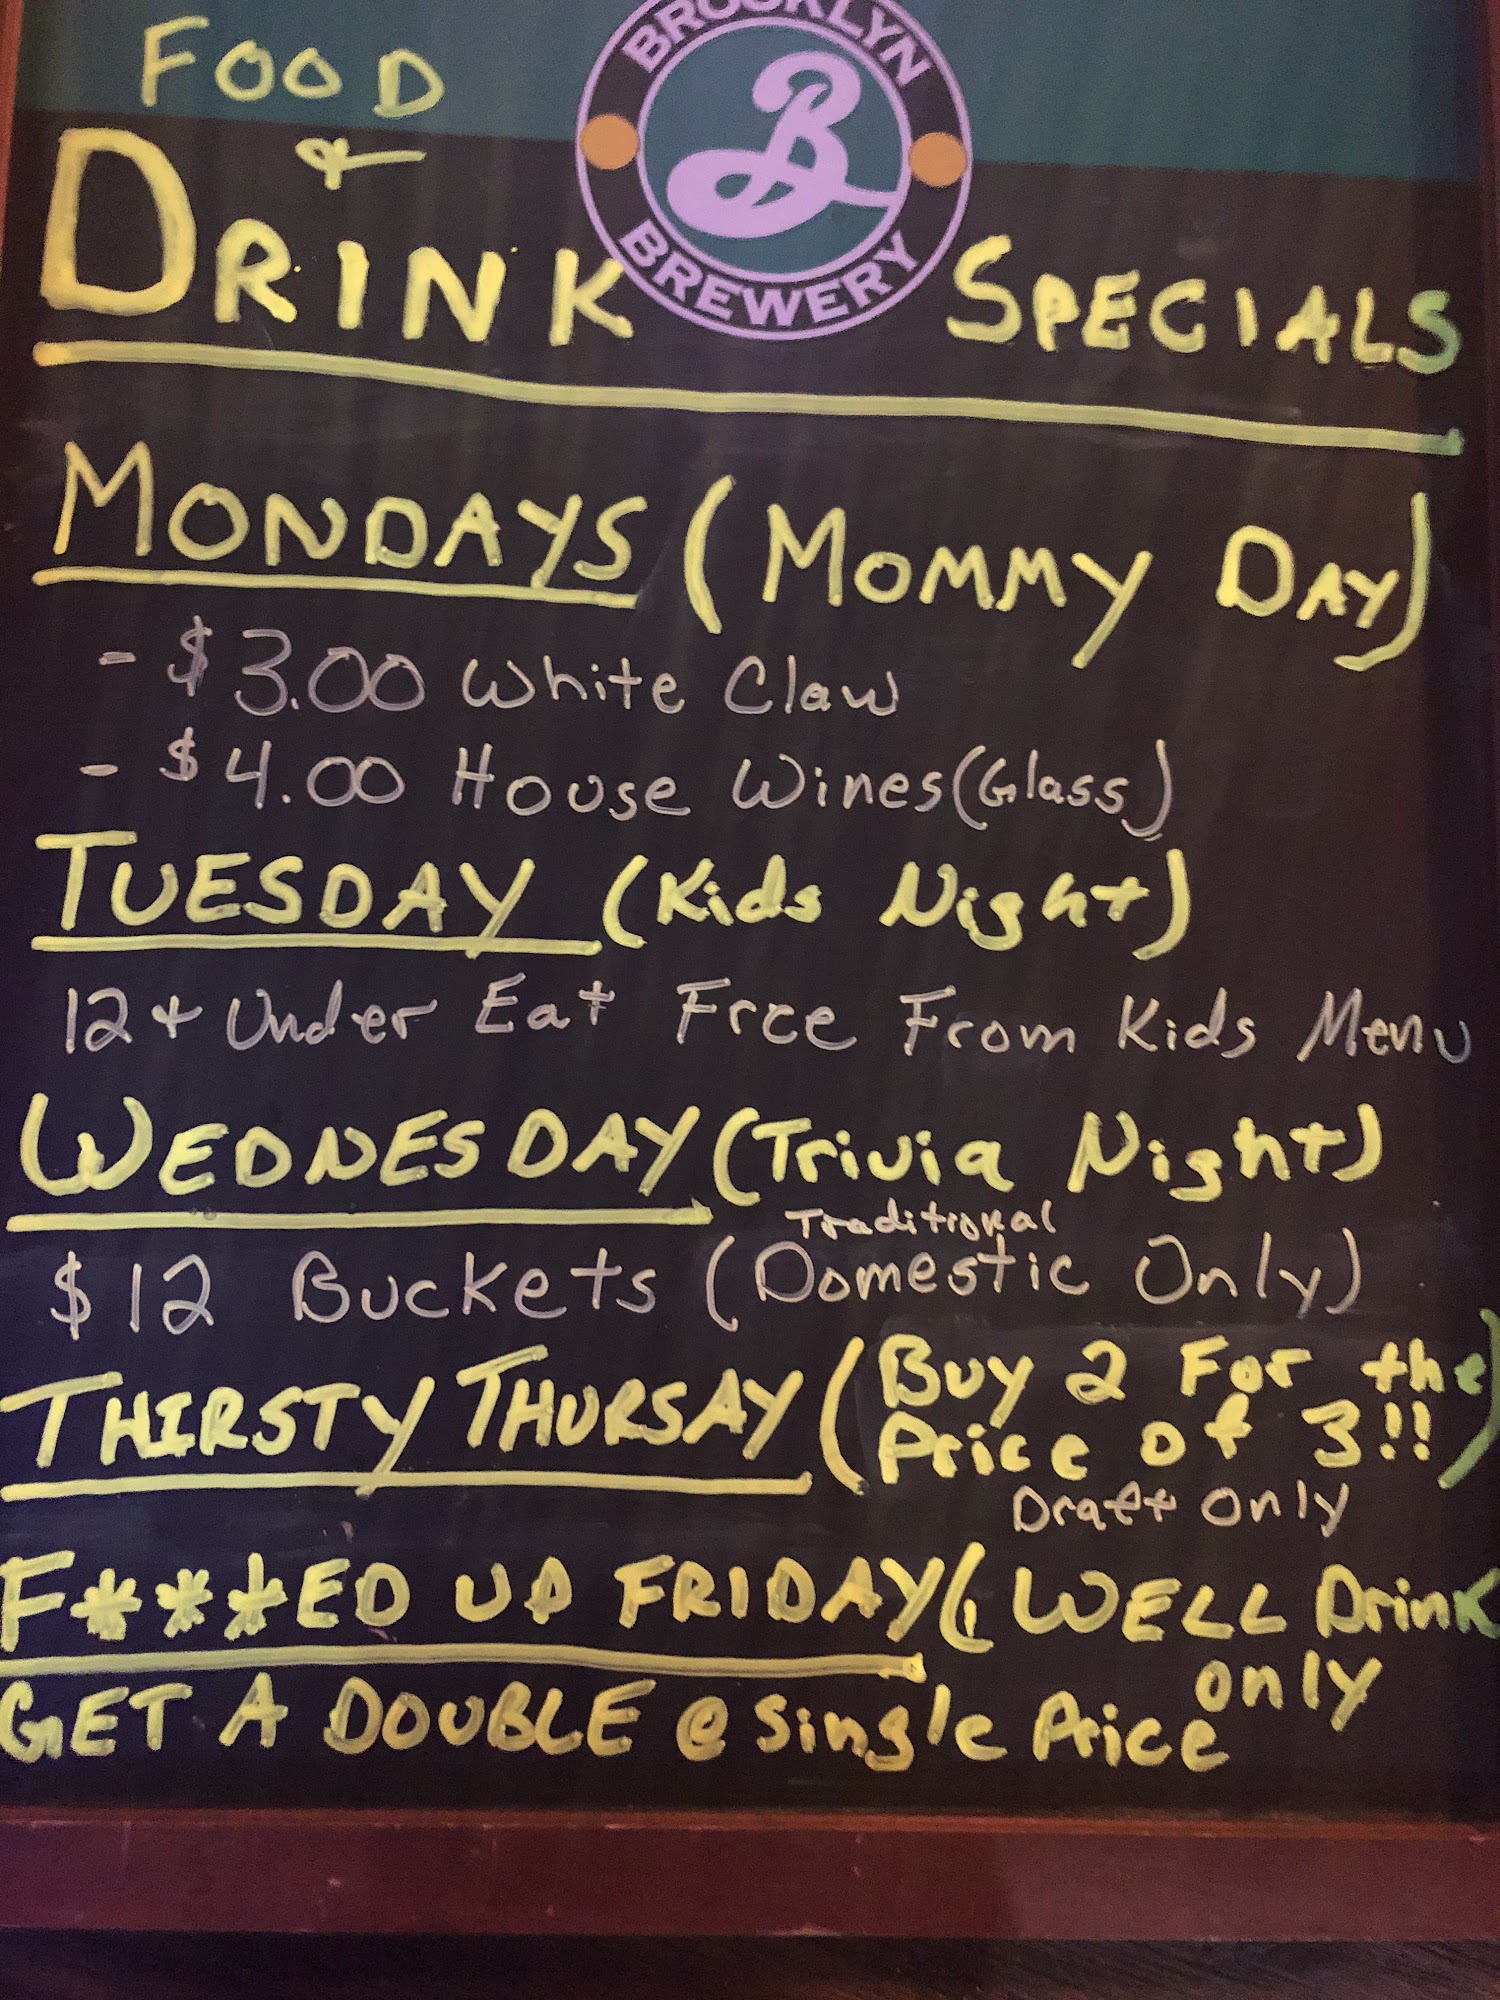 BROOKLYN
B
BREWERY
FOOD
&
DRINK SPECIALS
MONDAYS (MOMMY DAY)
- $3.00 White Claw
- $4.00 House Wines (Glass)
TUESDAY (Kids Night)
12 + Under Eat Free From Kids Menu
WEDNESDAY (Trivia Night)
Traditional
$12 Buckets (Domestic Only)
THIRSTY THURSAY (Buy 2 For the
Price of 3!!)
Draft Only
F***ED UP FRIDAY (WELL Drink
only
GET A DOUBLE @ Single Price